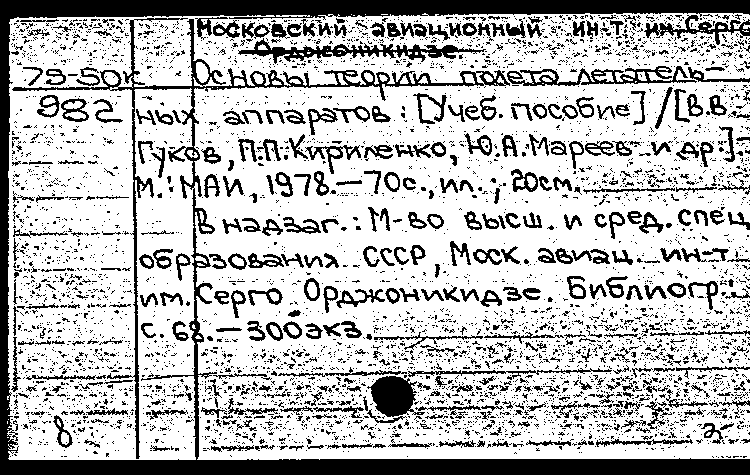 Московский авиационный ин-т им. Серго
Орджоникидзе.
79-50к Основы теории полета летатель-
982 ных аппаратов : [Учеб. пособие] / [В.В.
Гуков, П.П. Кириленко, Ю.А. Мареев и др.].
М. : МАИ, 1978.—70с., ил. ; 20см.
В надзаг.: М-во высш. и сред. спец.
образования СССР, Моск. авиац. ин-т
им. Серго Орджоникидзе. Библиогр.:
с. 68.—300экз.
8 2-